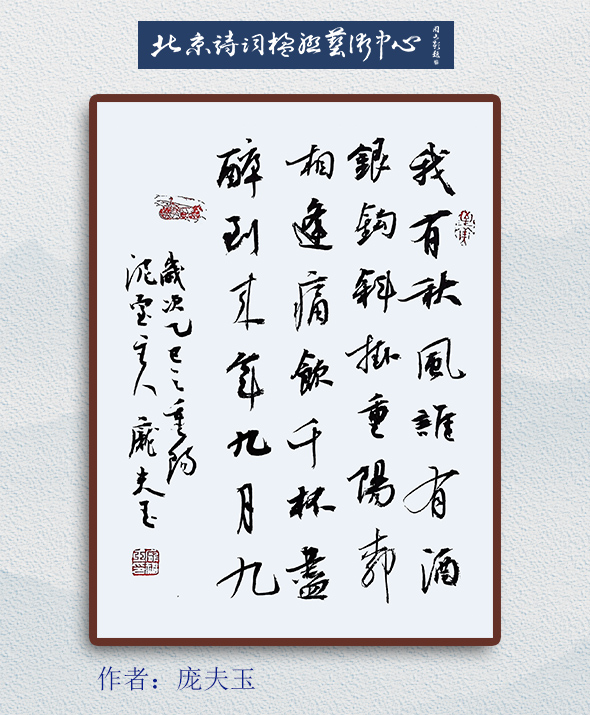 北京詩詞楹聯藝術中心
我有秋風誰有酒
銀鈎斜掛重陽
相逢痛飲千杯盡
醉到來年九月九
歲次乙巳之重陽
主人龐夫玉
作者：庞夫玉